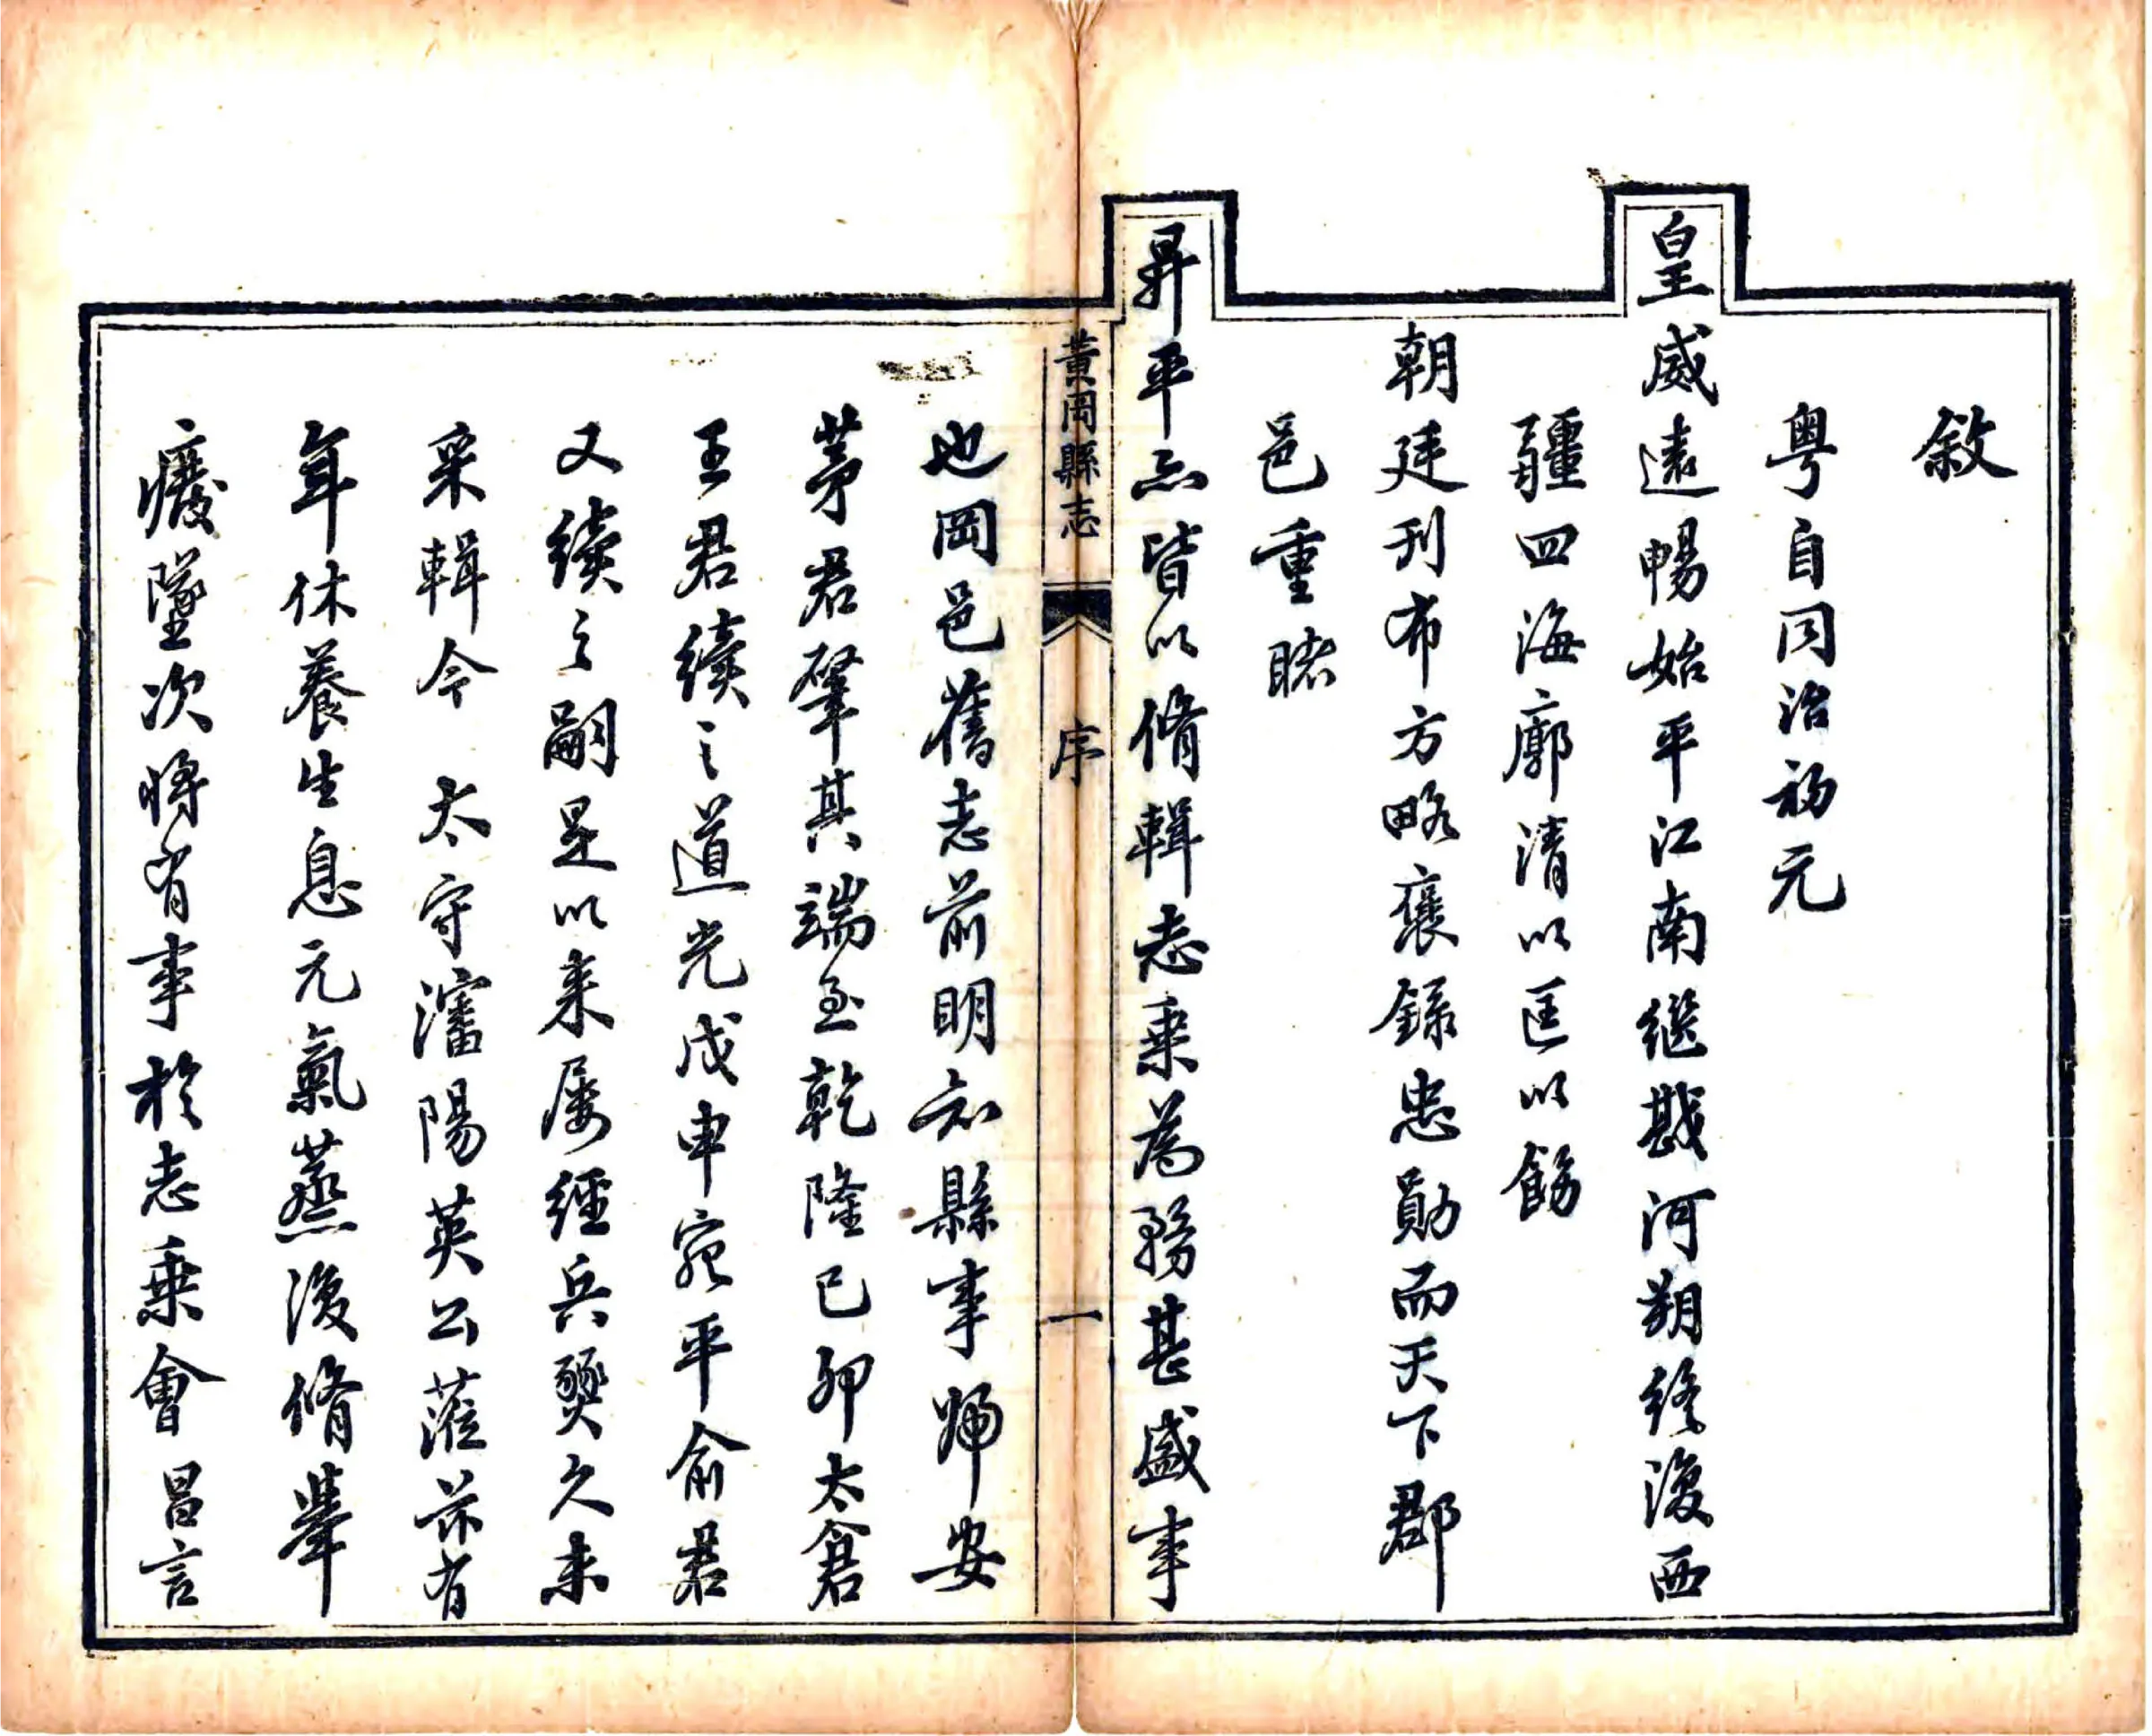 敘
粵自同治初元
皇威遠暢始平江南繼戡河朔終復西
疆四海廓清以匡以飭
朝廷刊布方略褒錄忠勛而天下郡
邑重睹
昇平亦皆以脩輯志乘為務甚盛事
黃岡縣志
序
一
也岡邑舊志前明知縣事歸安
茅君肇其端至乾隆己卯太倉
王君續之道光戊申宛平俞君
又續之嗣是以来屡經兵燹久未
采輯今 太守瀋陽英公蒞茲有
年休養生息元氣蒸復脩舉
癈墜次将有事於志乘會 昌言